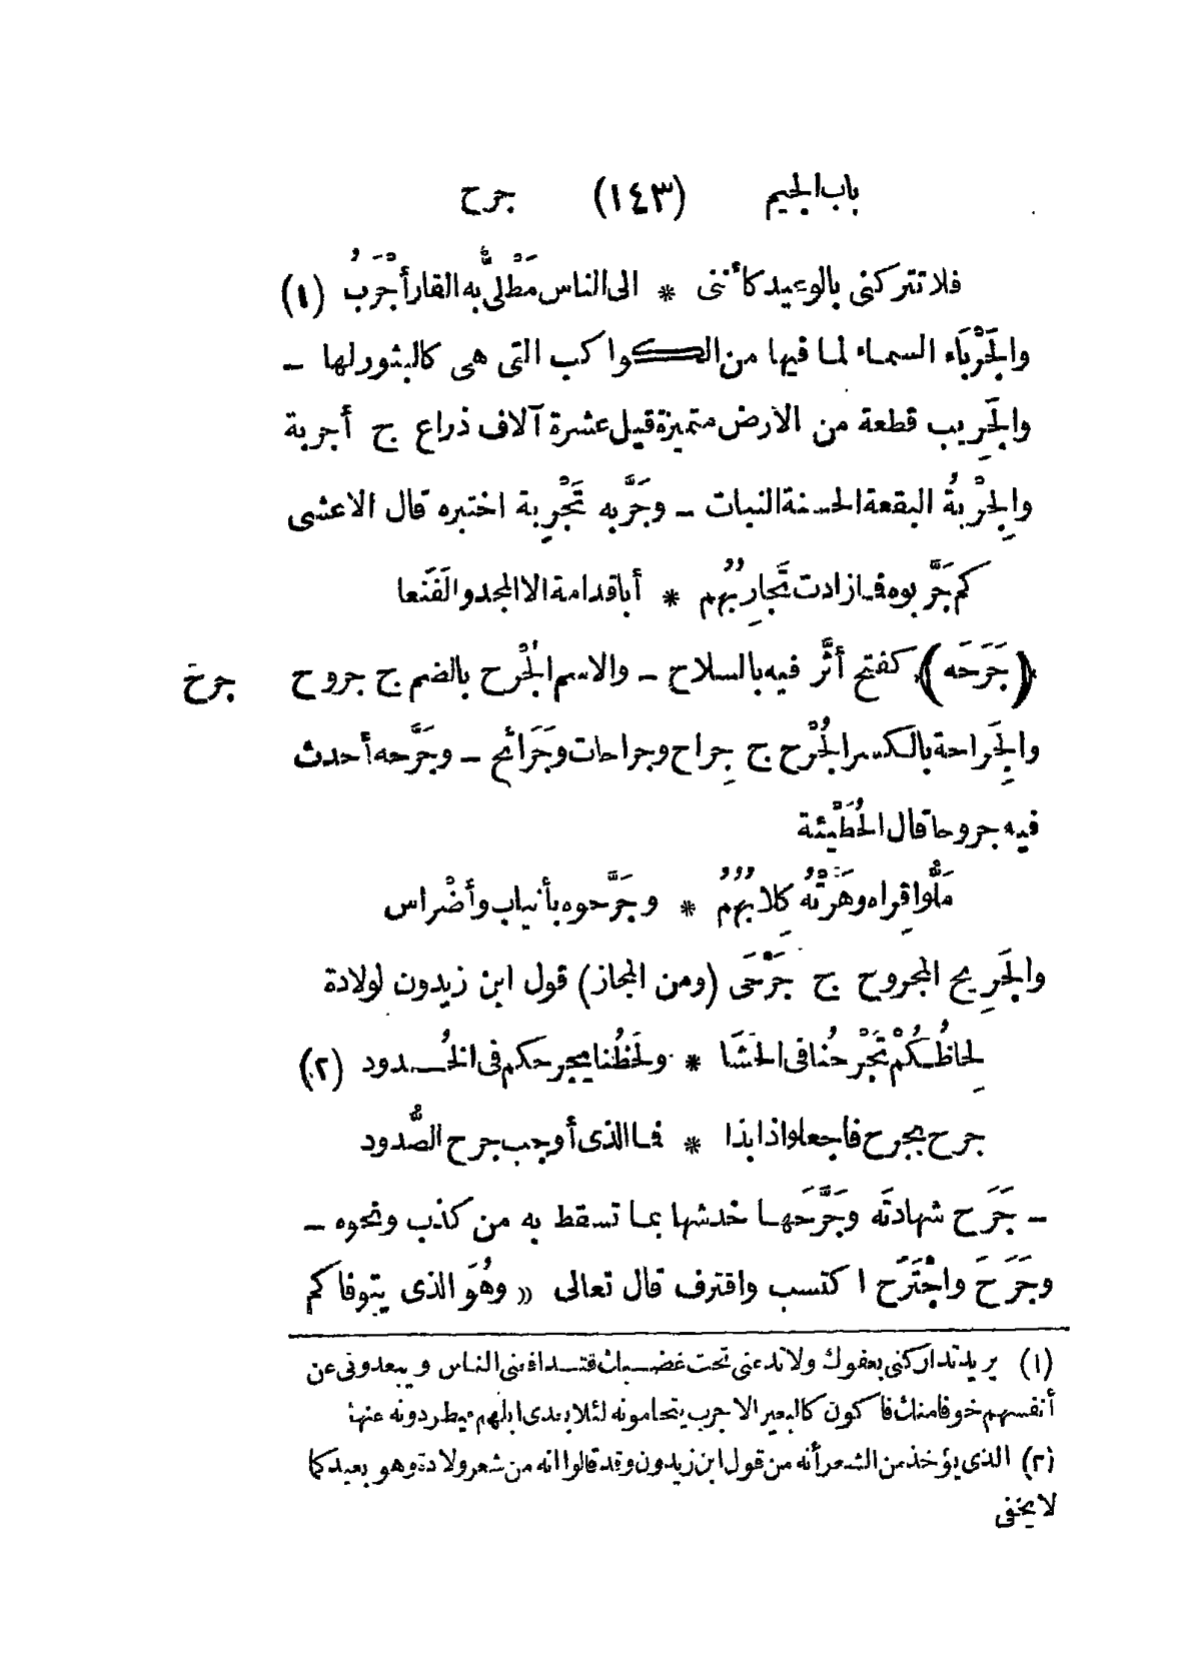 باب الجيم (١٤٣) جرح
فلا تتركنى بالوعيد كأننى * الى الناس مَطْلىٌّ به القار أجْرَبُ (١)
والجَرْبَاء السماء لما فيها من الكواكب التى هى كالبثور لها –
والجَرِيب قطعة من الارض متميزة قيل عشرة آلاف ذراع ج أجربة
والجِرْبةُ البقعة الحسنة النبات – وجَرَّبه تَجْرِبة اختبره قال الاعشى
كم جَرَّبوه فما زادت تَجارِبُهُم * أبا قدامة الا المجد والفَنَعا
﴿جَرَحَه﴾ كفتح أثَّر فيه بالسلاح – والاسم الجُرْح بالضم ج جروح جرح
والجِراحة بالكسر الجُرْح ج جِراح وجراحات وجَرَائح – وجَرَّحه أحدث
فيه جروحا قال الحُطَيْئة
مَلُّوا قِراه وهَرَّتْهُ كِلابُهُمُ * وجَرَّحوه بأنياب وأضْراس
والجَرِيح المجروح ج جَرْحَى (ومن المجاز) قول ابن زيدون لولادة
لِحاظُكُمْ تَجْرحُنا فى الحَشَا * ولَحظُنا يجرحكم فى الخُدود (٢)
جرح بجرح فاجعلوا ذا بذا * فما الذى أوجب جرح الصُّدود
– جَرَح شهادتَه وجَرَّحَها خدشها بما تسقط به من كذب ونحوه –
وجَرَحَ واجْتَرَح اكتسب واقترف قال تعالى « وهُوَ الذى يتوفاكم
(١) يريد تداركنى بعفوك ولا تدعنى تحت غضبك فتتداءنى الناس ويبعدونى عن
أنفسهم خوفا منك فأكون كالبعير الاجرب يتحامونه لئلا يعدى ابلهم فيطردونه عنها
(٢) الذى يؤخذ من الشعر أنه من قول ابن زيدون وقد قالوا انه من شعر ولادة وهو بعيد كما
لا يخفى